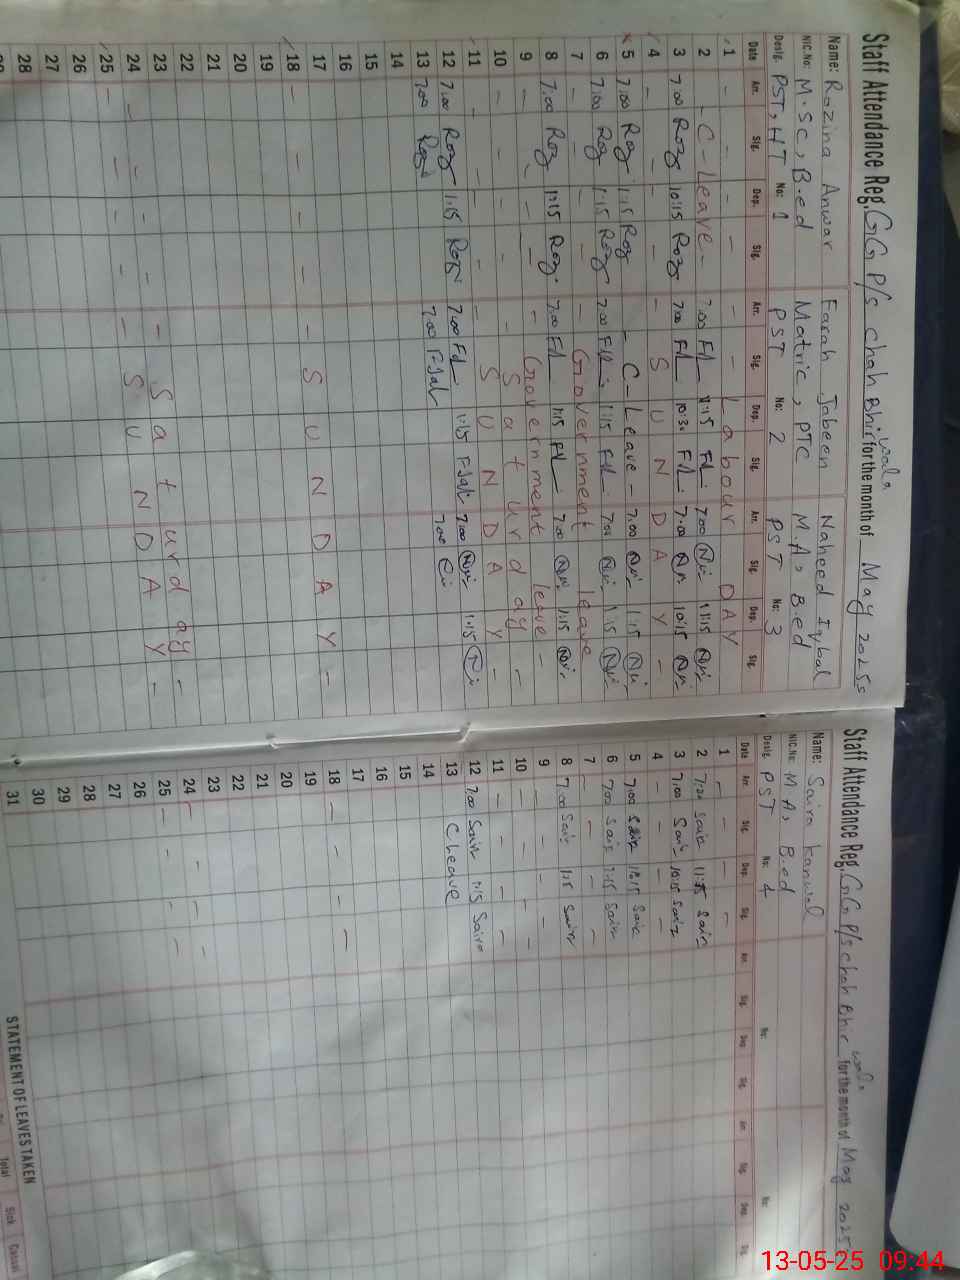 Staff Attendance Reg. GG P/s chah Bhir wala for the month of May 2025
Name: Rozina Anwar Farah Jabeen Naheed Iqbal
NIC.No: M.Sc, B.ed Matric, PTC M.A, B.ed
Desig. PST, HT No: 1 PST No: 2 PST No: 3
Date Arr. Sig. Dep. Sig. Arr. Sig. Dep. Sig. Arr. Sig. Dep. Sig.
1 - - - - - - Labour DAY
2 - C-Leave- 7:00 11:15 7:00 11:15
3 7:00 Rozy 10:15 Rozy 7:00 10:30 7:00 10:15
4 - - - - - SUNDAY -
5 7:00 Rozy 1:15 Rozy - C-Leave - 7:00 1:15
6 7:00 Rozy 1:15 Rozy 7:00 1:15 7:00 1:15
7 - - - - - Government leave
8 7:00 Rozy 1:15 Rozy 7:00 1:15 7:00 1:15
9 - - - - - Government leave -
10 - - - - - Saturday -
11 - - - - - SUNDAY -
12 7:00 Rozy 1:15 Rozy 7:00 1:15 7:00 1:15
13 7:00 Rozy 7:00 7:00
14
15
16
17
18 - - - - - SUNDAY -
19
20
21
22
23
24 - - - - - Saturday -
25 - - - - - SUNDAY -
26
27
28
29
Staff Attendance Reg. GG P/s chah Bhir wala for the month of May 2025
Name: Saira Kanwal
NIC.No: M.A, B.ed
Desig. PST No: 4 No: No:
Date Arr. Sig. Dep. Sig. Arr. Sig. Dep. Sig. Arr. Sig. Dep. Sig.
1 - - - -
2 Saira Saira
3 7:00 Saira 10:15 Saira
4 - - - -
5 7:00 Saira 1:15 Saira
6 7:00 Saira 1:15 Saira
7 - - - -
8 7:00 Saira 1:15 Saira
9 - - - -
10 - - - -
11 - - - -
12 7:00 Saira 1:15 Saira
13 C leave
14
15
16
17
18 - - - -
19
20
21
22
23
24 - - - -
25 - - - -
26
27
28
29
30
31
STATEMENT OF LEAVES TAKEN
Total Sick Casual
13-05-25 09:44